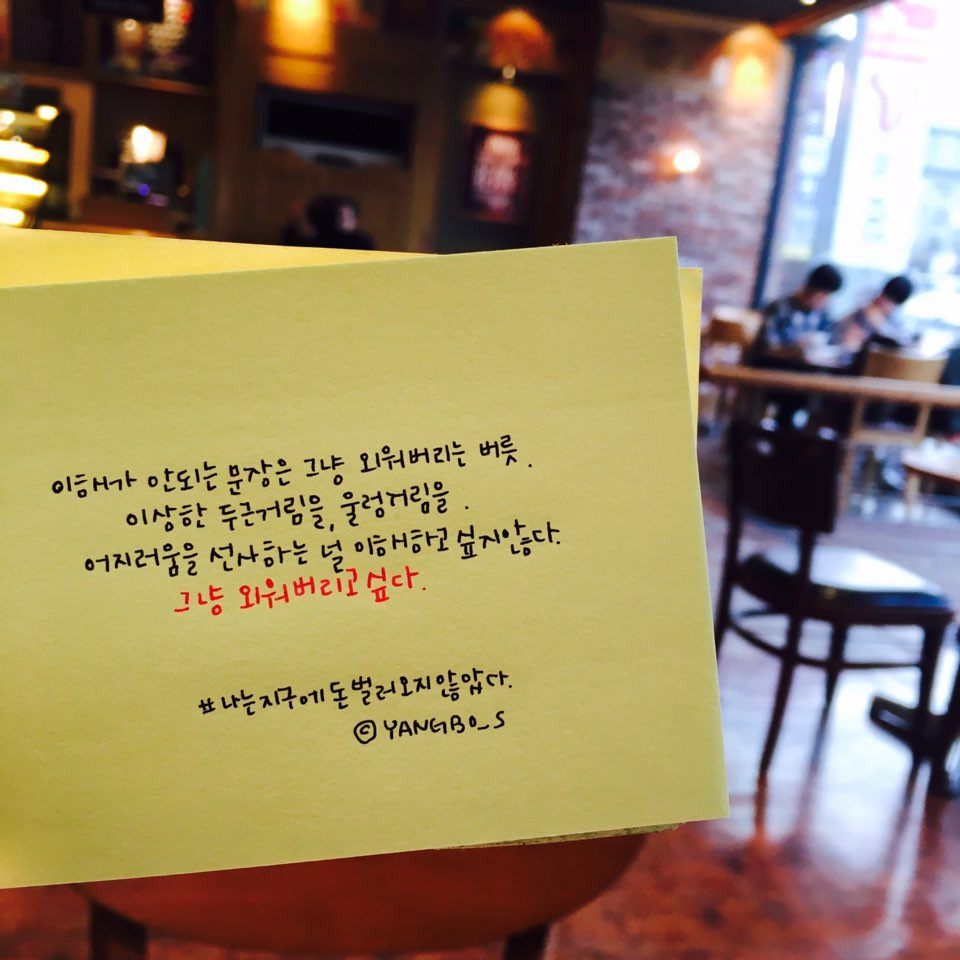 이해가 안되는 문장은 그냥 외워버리는 버릇.
이상한 두근거림을, 울렁거림을.
어지러움을 선사하는 널 이해하고싶지않다.
그냥 외워버리고싶다.
#나는지구에돈벌러오지않았다.
© YANGBO_S